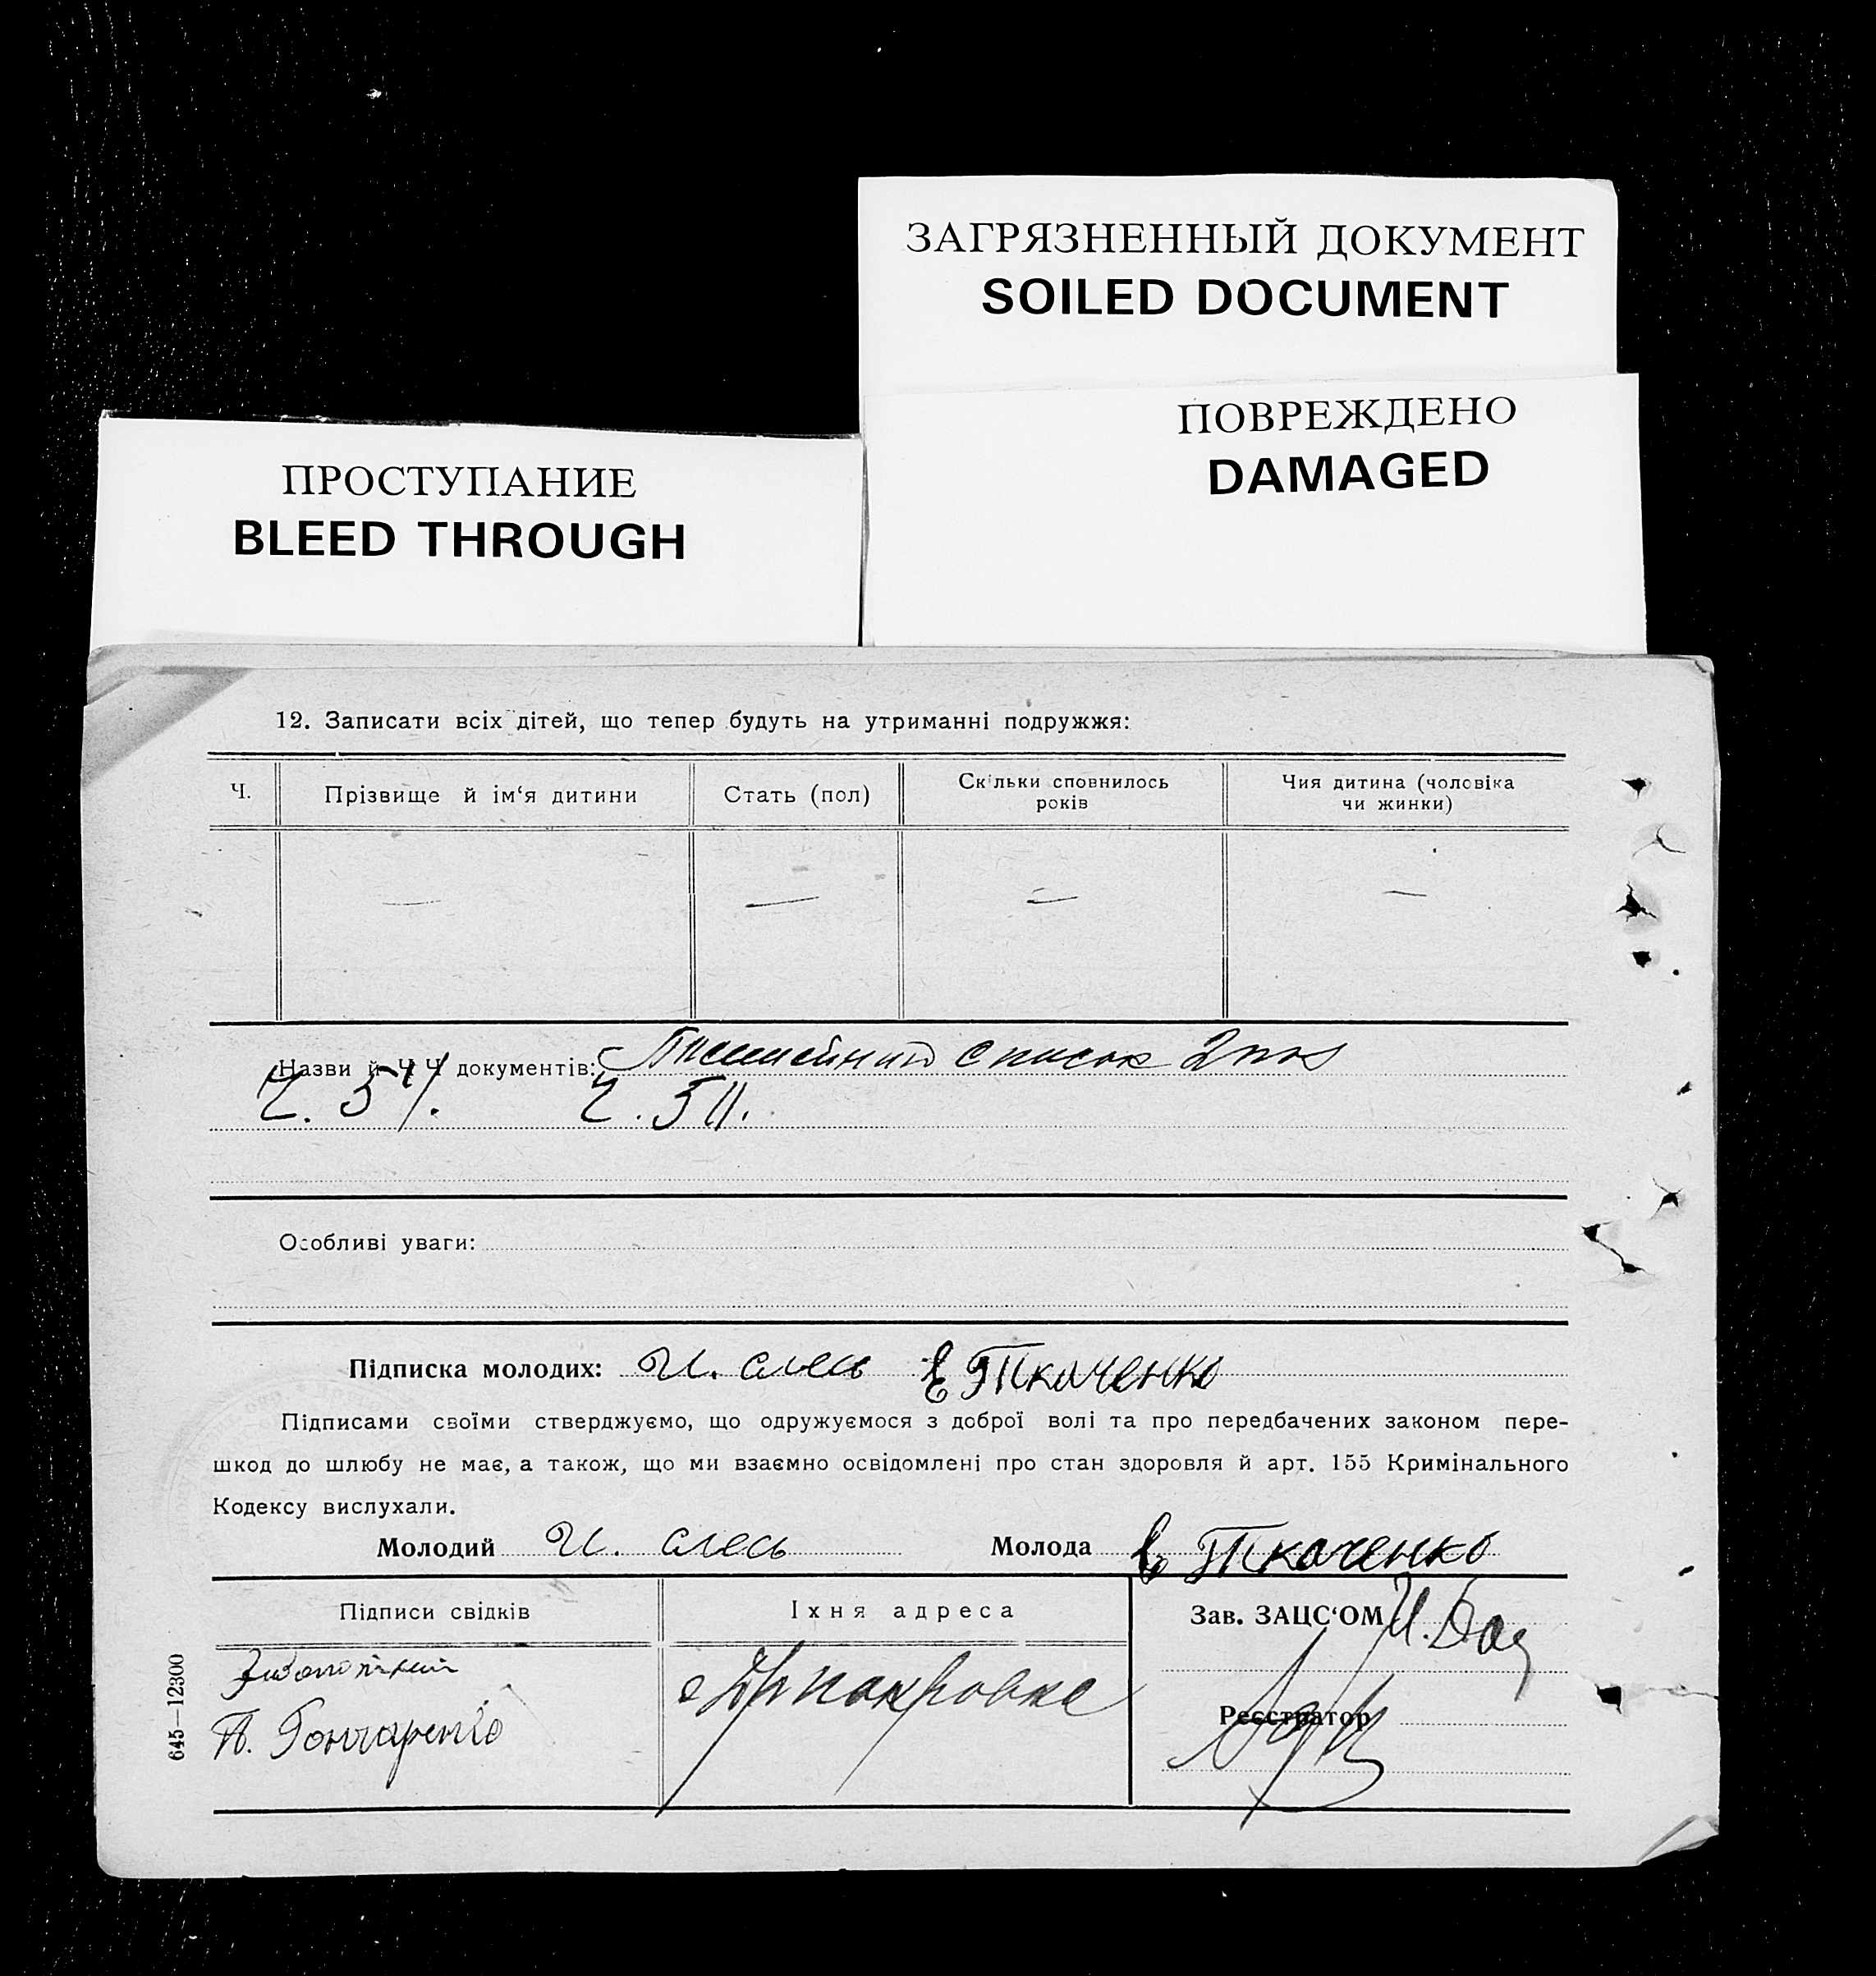 ЗАГРЯЗНЕННЫЙ ДОКУМЕНТ
SOILED DOCUMENT
ПОВРЕЖДЕНО
DAMAGED
ПРОСТУПАНИЕ
BLEED THROUGH
12. Записати всіх дітей, що тепер будуть на утриманні подружжя:
Ч.
Прізвище й ім‘я дитини
Стать (пол)
Скільки сповнилось
років
Чия дитина (чоловіка
чи жинки)
— — — —
Назви й Ч.Ч документів: список
Ч. 54. Ч. 511.
Особливі уваги:
Підписка молодих: И. Ткаченко
Підписами своїми стверджуємо, що одружуємося з доброї волі та про передбачених законом пере-
шкод до шлюбу не має, а також, що ми взаємно освідомлені про стан здоровля й арт. 155 Кримінального
Кодексу вислухали.
Молодий И. Молода Ткаченко
Підписи свідків
Їхня адреса
Зав. ЗАЦС‘ОМ
П. Гончаренко
Реєстратор
645—12300